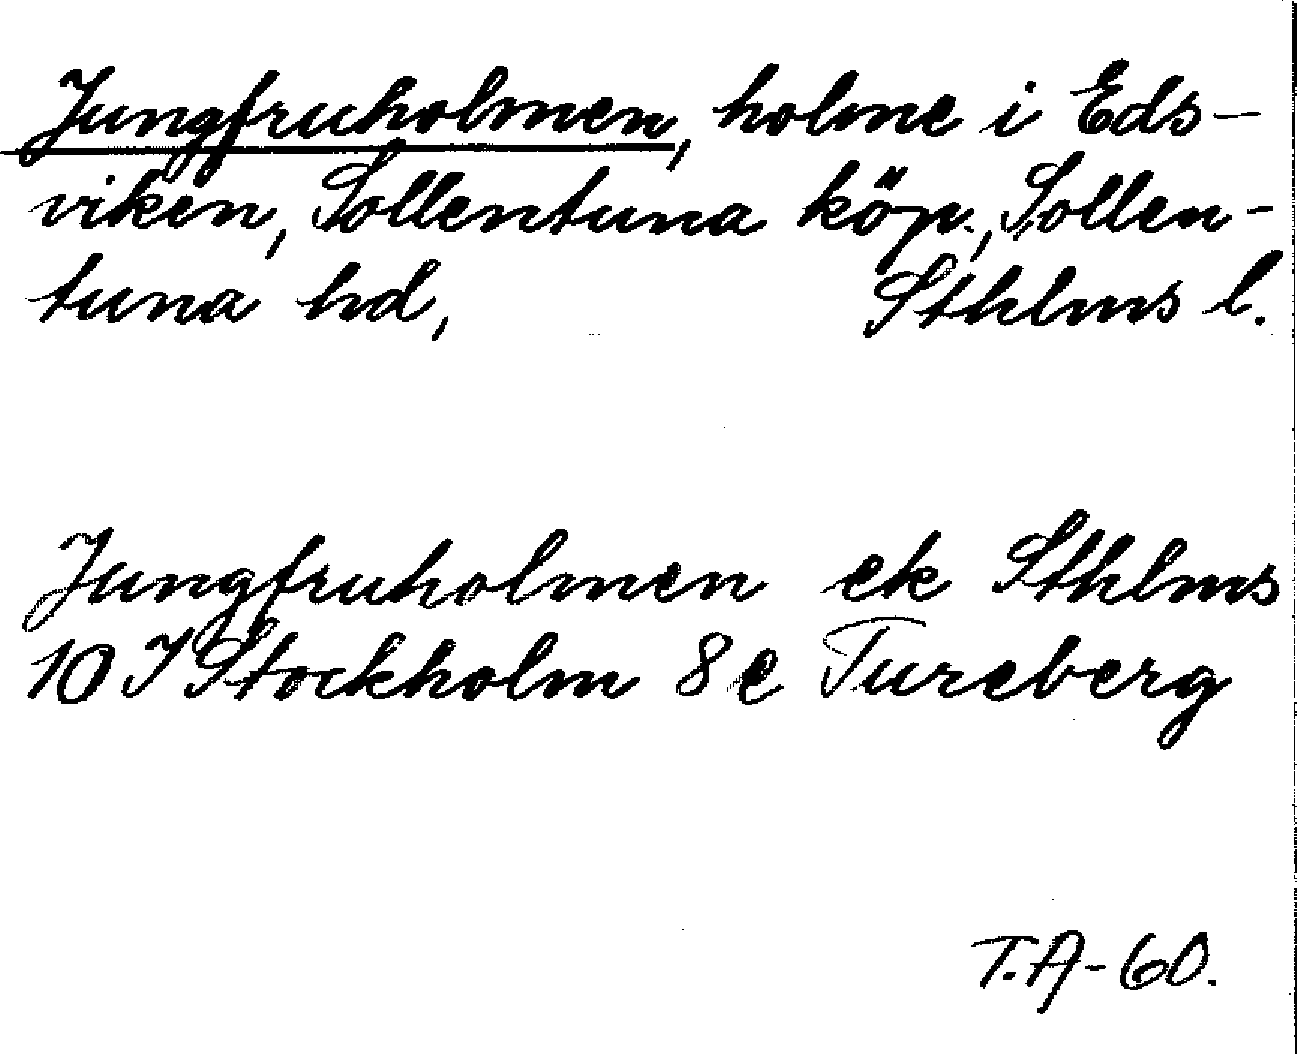 Jungfruholmen, holme i Eds-
viken, Sollentuna köp., Sollen-
tuna hd, Sthlms l.
Jungfruholmen ek Sthlms
10 I Stockholm 8 e Tureberg
T.A-60.